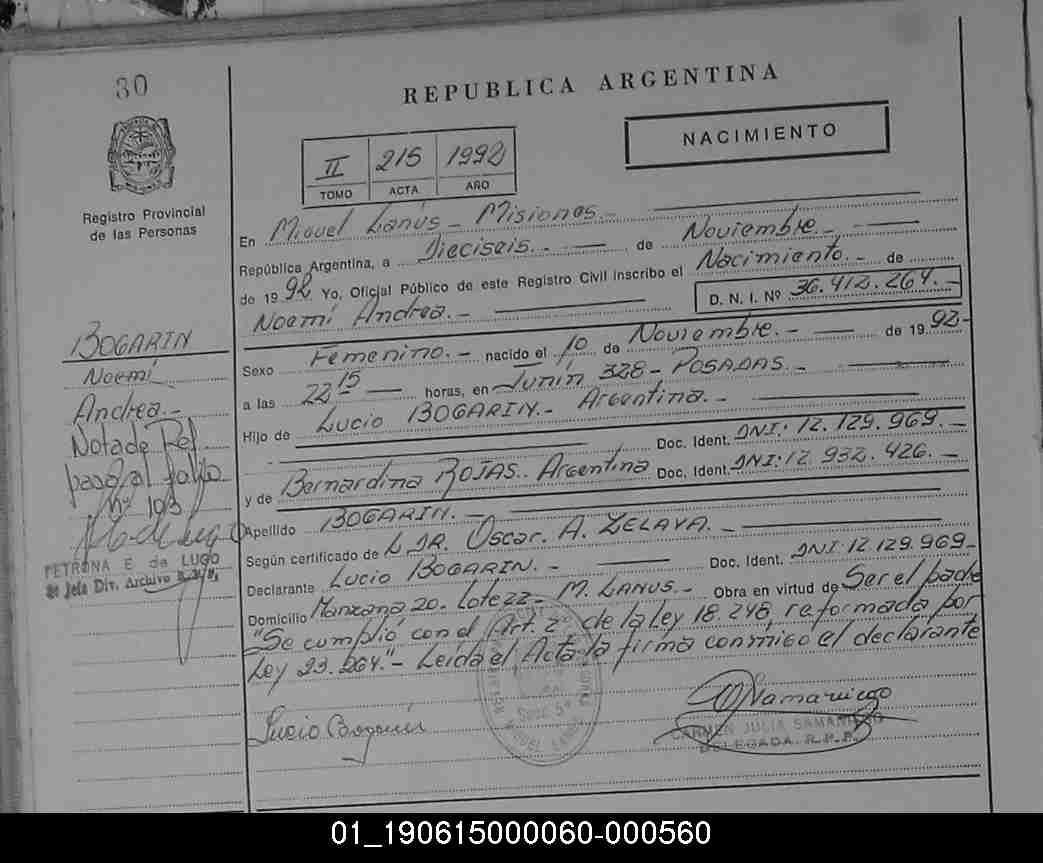 30
REPUBLICA ARGENTINA
NACIMIENTO
II 215 1992
TOMO ACTA AÑO
Registro Provincial
de las Personas
En Miguel Lanús - Misiones.-
República Argentina, a Dieciseis.- de Noviembre.-
de 1992. Yo, Oficial Público de este Registro Civil inscribo el Nacimiento.- de
Noemí Andrea.- D. N. I. Nº 36.412.264.-
BOGARIN
Noemí
Andrea.-
Nota de Ref.
pasa al folio
nº 103
PETRONA E. de LUGO
Jefa Div. Archivo
Sexo Femenino.- nacido el 10 de Noviembre.- de 1992-
a las 22 15 horas, en Junín 328 - POSADAS.-
Hijo de Lucio BOGARIN.- Argentina.-
Doc. Ident. DNI: 12.129.969.-
y de Bernardina ROJAS. Argentina Doc. Ident. DNI: 12.932.426.-
Apellido BOGARIN.-
Según certificado de L DR. Oscar. A. ZELAYA.-
Declarante Lucio BOGARIN.- Doc. Ident. DNI: 12.129.969-
Domicilio Manzana 20. Lote 22 - M. LANUS.- Obra en virtud de Ser el padre
"Se cumplió con el Art. 2º de la Ley 18.248, reformada por
Ley 23.264."- Leída el Acta la firma conmigo el declarante
Lucio Bogarin
CARMEN JULIA SAMANIEGO
DELEGADA R.P.P.
01_190615000060-000560